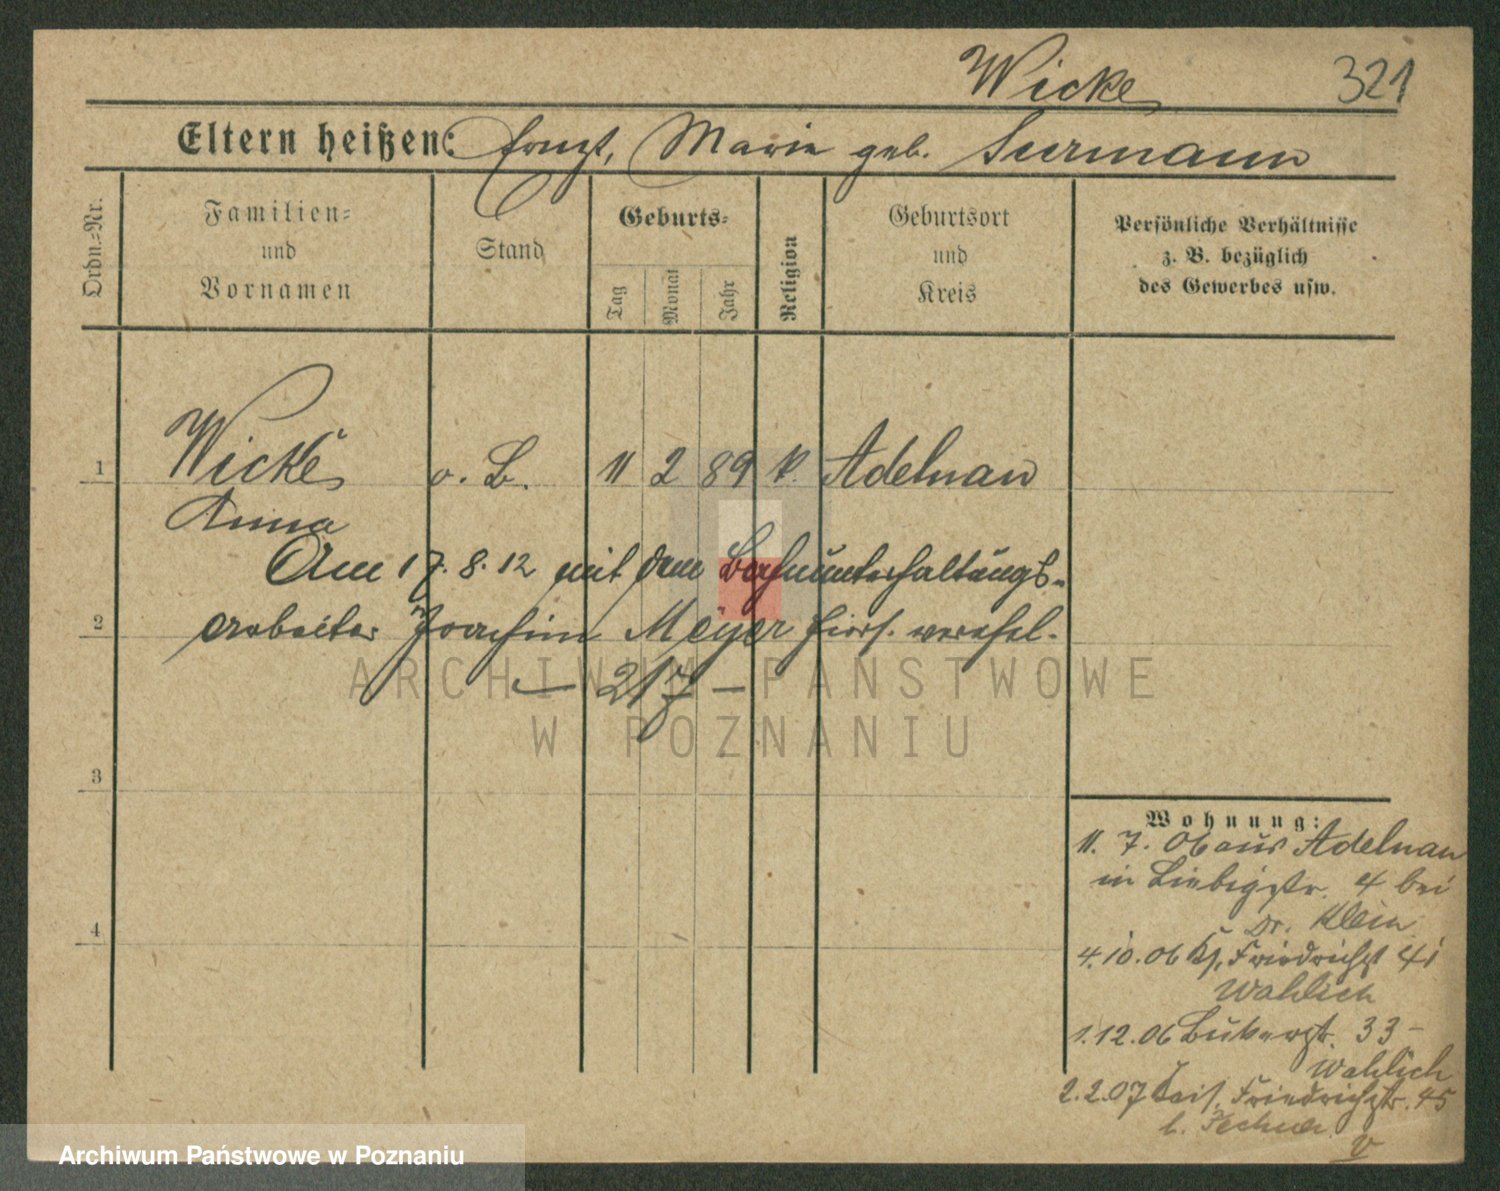 Wicke 321
Eltern heißen: Ernst, Marie geb. Surmann
Ordn.=Nr.
Familien=
und
Vornamen
Stand
Geburts=
Tag
Monat
Jahr
Religion
Geburtsort
und
Kreis
Persönliche Verhältnisse
z. B. bezüglich
des Gewerbes usw.
1 Wicke o. B. 11 2 89 k. Adelnau
Anna
Am 17.8.12 mit dem Bahnunterhaltungs-
2 arbeiter Joachim Meyer hiers. verehel.
— 217 —
ARCHIWUM PAŃSTWOWE
W POZNANIU
3
4
Wohnung:
11. 7. 06 aus Adelnau
in Liebigstr. 4 bei
Dr. Klein
4.10.06 Ks. Friedrichst 41
Wahlich
1.12.06 Bukerst. 33 –
Wahlich
2.2.07 Kais. Friedrichstr. 45
b.
Archiwum Państwowe w Poznaniu